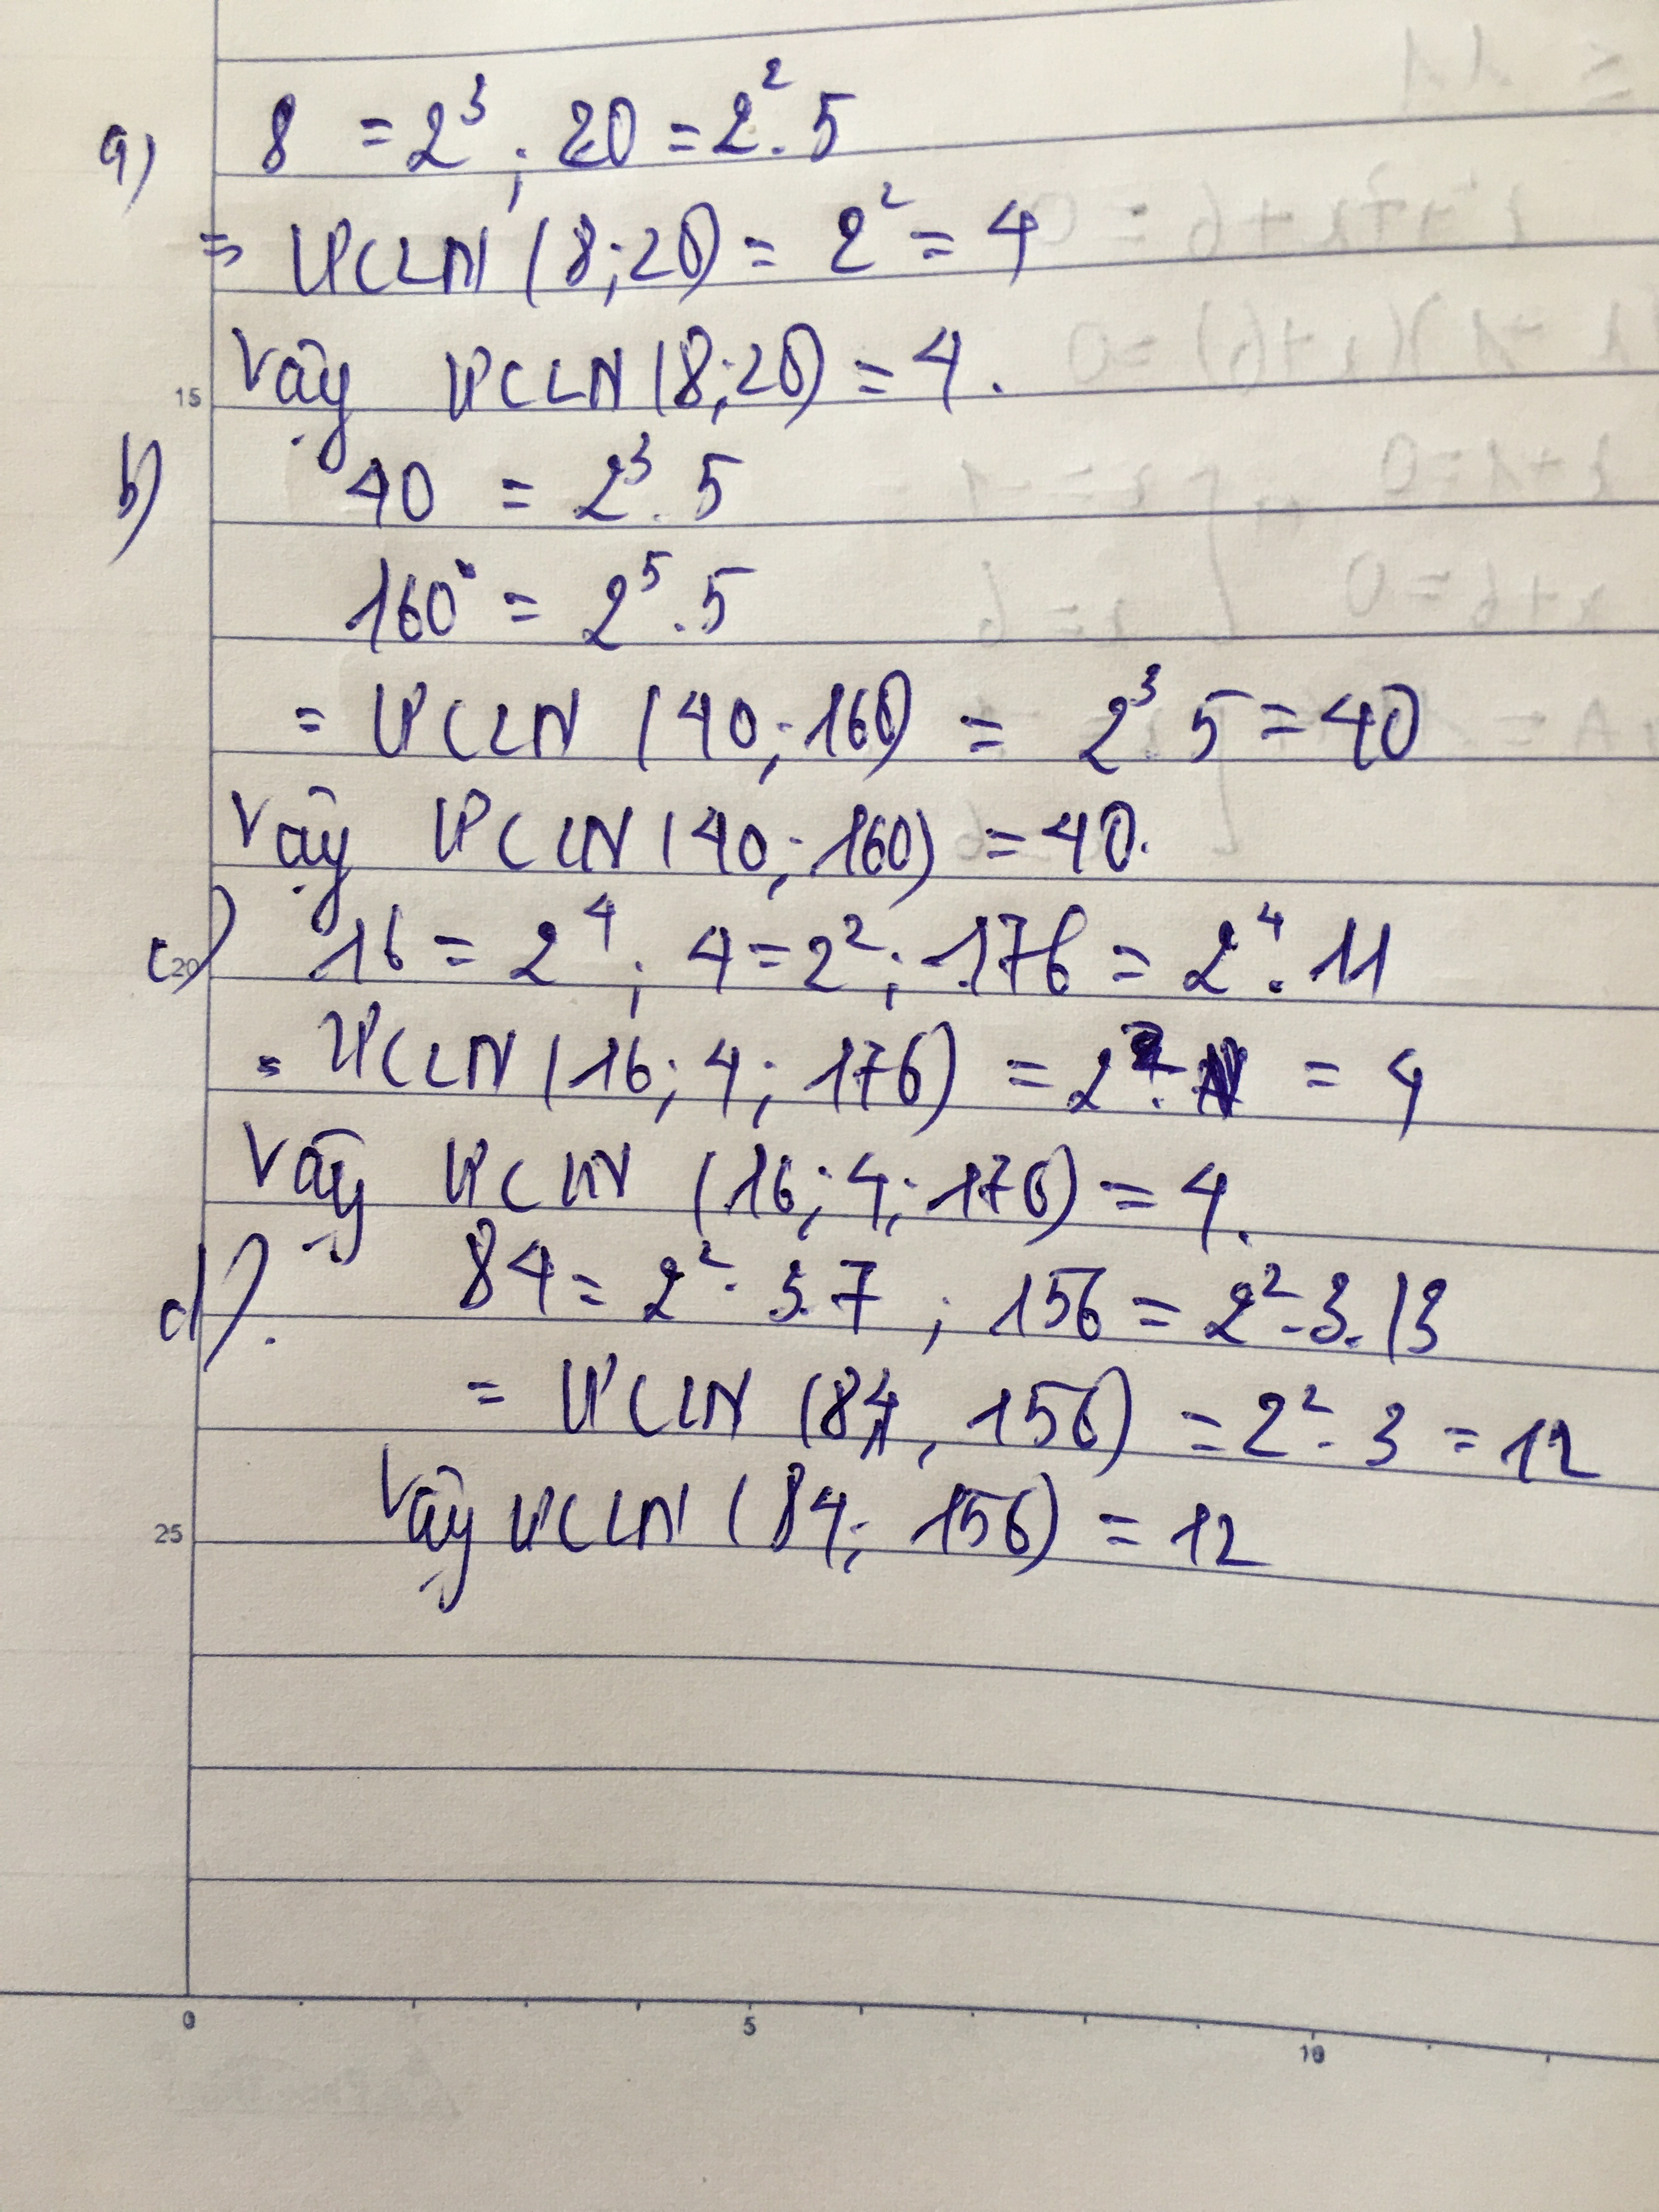 a) 8 = 2³ ; 20 = 2².5
=> ƯCLN (8;20) = 2² = 4
Vậy ƯCLN (8;20) = 4.
b) 40 = 2³.5
160 = 2⁵.5
= ƯCLN (40;160) = 2³ 5 = 40
Vậy ƯCLN (40;160) = 40.
c) 16 = 2⁴ ; 4 = 2² ; 176 = 2⁴.11
= ƯCLN (16; 4; 176) = 2² = 4
Vậy ƯCLN (16; 4; 176) = 4.
d). 84 = 2².3.7 ; 156 = 2².3.13
= ƯCLN (84, 156) = 2².3 = 12
Vậy ƯCLN (84; 156) = 12
15
20
25
0 5 10